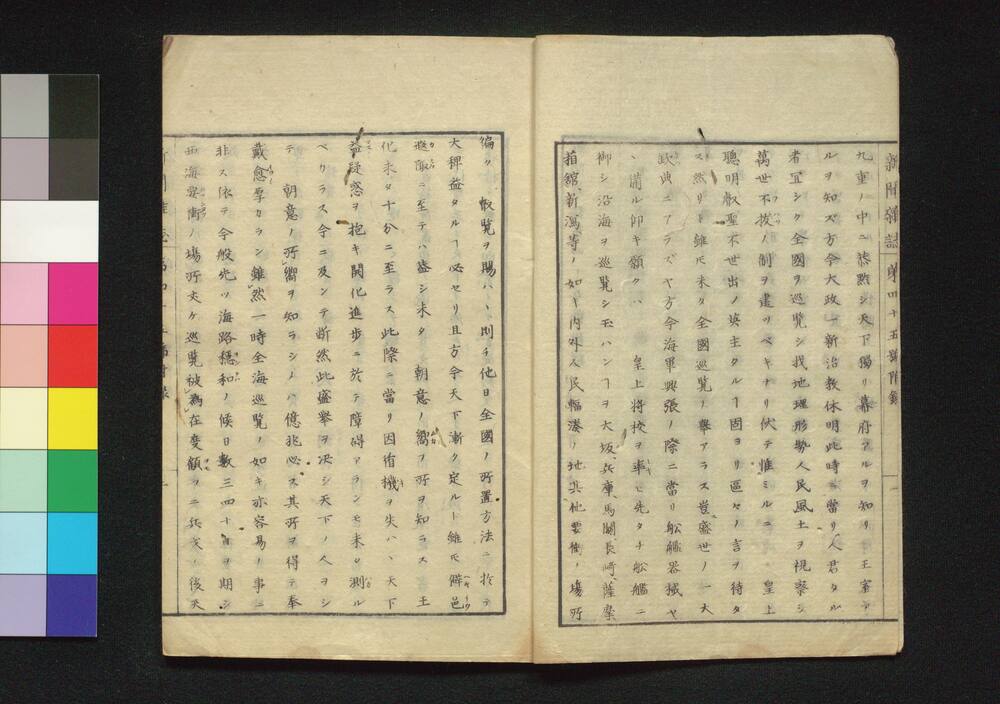 新聞雜誌 第四十五號附錄 一
九重ノ中ニ恭黙シ天下獨リ幕府アルヲ知リ王室アルヲ知ズ方今大政一新治教休明此時ニ當リ人君タル
者宜シク全國ヲ巡覧シ找地理形勢人民風土ヲ視察シ
萬世不拔ノ制ヲ建ツベキナリ伏テ惟ミルニ 皇上
聰明叡聖不世出ノ英主タルヿ固ヨリ區々ノ言ヲ待タ
ス然リト雖モ未タ全國巡覧ノ擧アラス豈盛世ノ一大
欠典ニアラズヤ方今海軍興張ノ際ニ當リ舩艦器械ヤ
ヽ備ル仰キ願クハ 皇上将校ヲ率ヒ先タチ舩艦ニ
御シ沿海ヲ巡覧シ玉ハンヿヲ大坂、兵庫、馬關、長崎、薩摩、
箱舘、新瀉、等ノ如キ内外人民輻湊ノ地其他要衝ノ場所
徧ク 叡覧ヲ賜ハヽ則チ他日全國ノ所置方法ニ於テ
大稗益タルヿ必セリ且方今天下漸ク定ルト雖モ僻邑
遐陬ニ至テハ盖シ未タ 朝意ノ嚮フ所ヲ知ラス 王
化未タ十分ニ至ラス此際ニ當リ因循機ヲ失ハヽ天下
益疑惑ヲ抱キ開化進歩ニ於テ障碍アランモ未タ測ル
ベクラス今ニ及ンテ断然此盛擧ヲ决シ天下ノ人ヲシ
テ 朝意ノ所嚮ヲ知ラシメハ億兆必ス其所ヲ得テ奉
戴愈厚カラン雖然一時全海巡覧ノ如キ亦容易ノ事ニ
非ス依テ今般先ツ海路穏和ノ候日數三四十日ヲ期シ
西海要衝ノ場所丈ケ巡覧被為在度額ヲニ兵